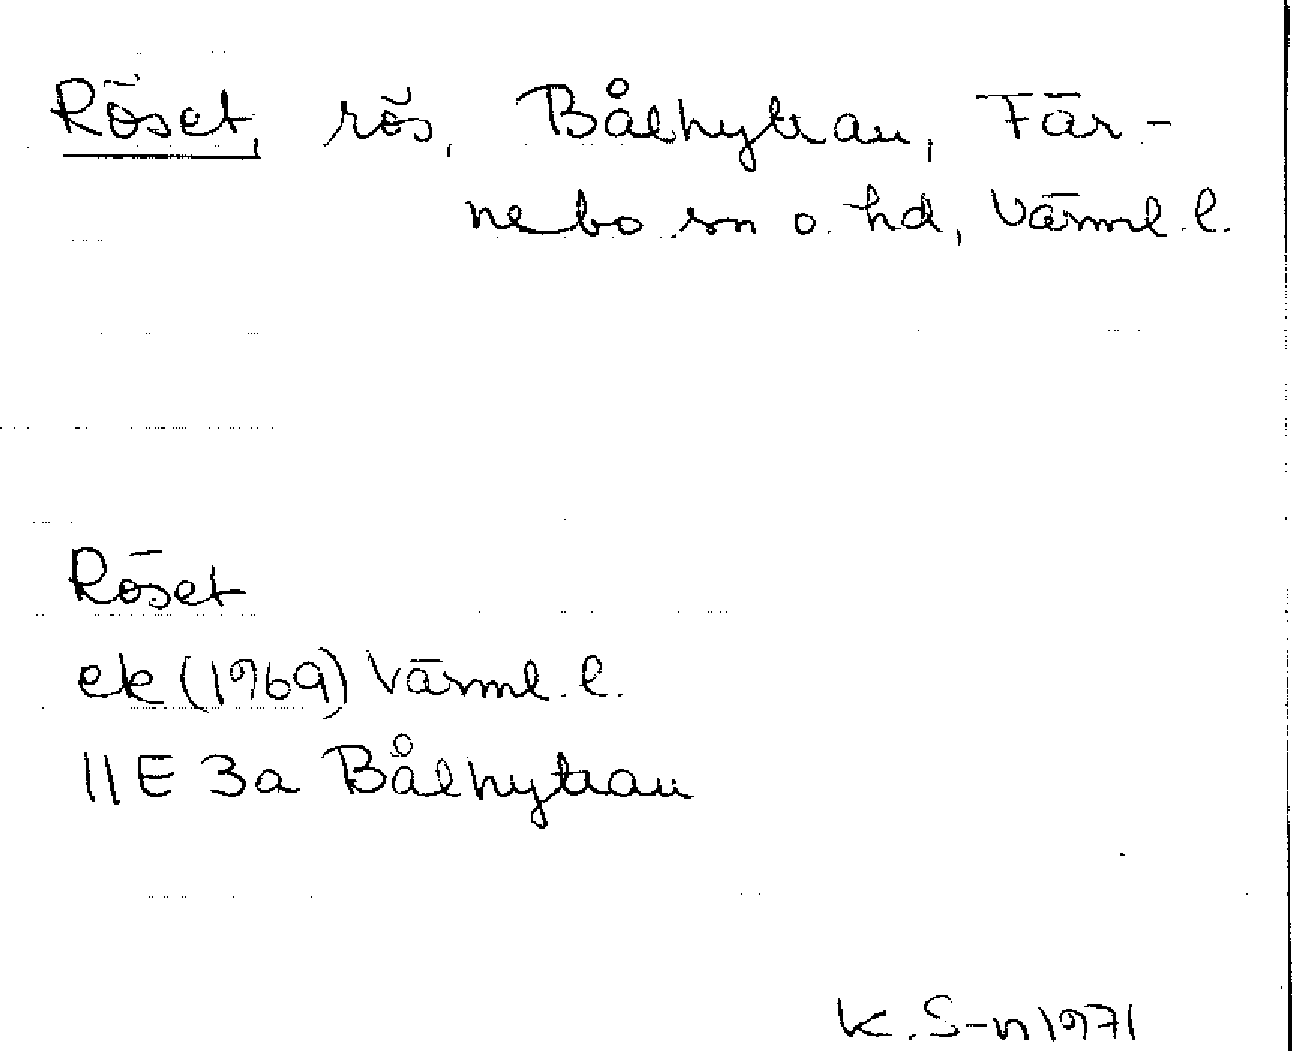 Röset, rös, Bålhyttan, Fär-
nebo sn o. hd, Värml. l.
Röset
ek (1969) Värml. l.
11E 3a Bålhyttan
K. S-n 1971